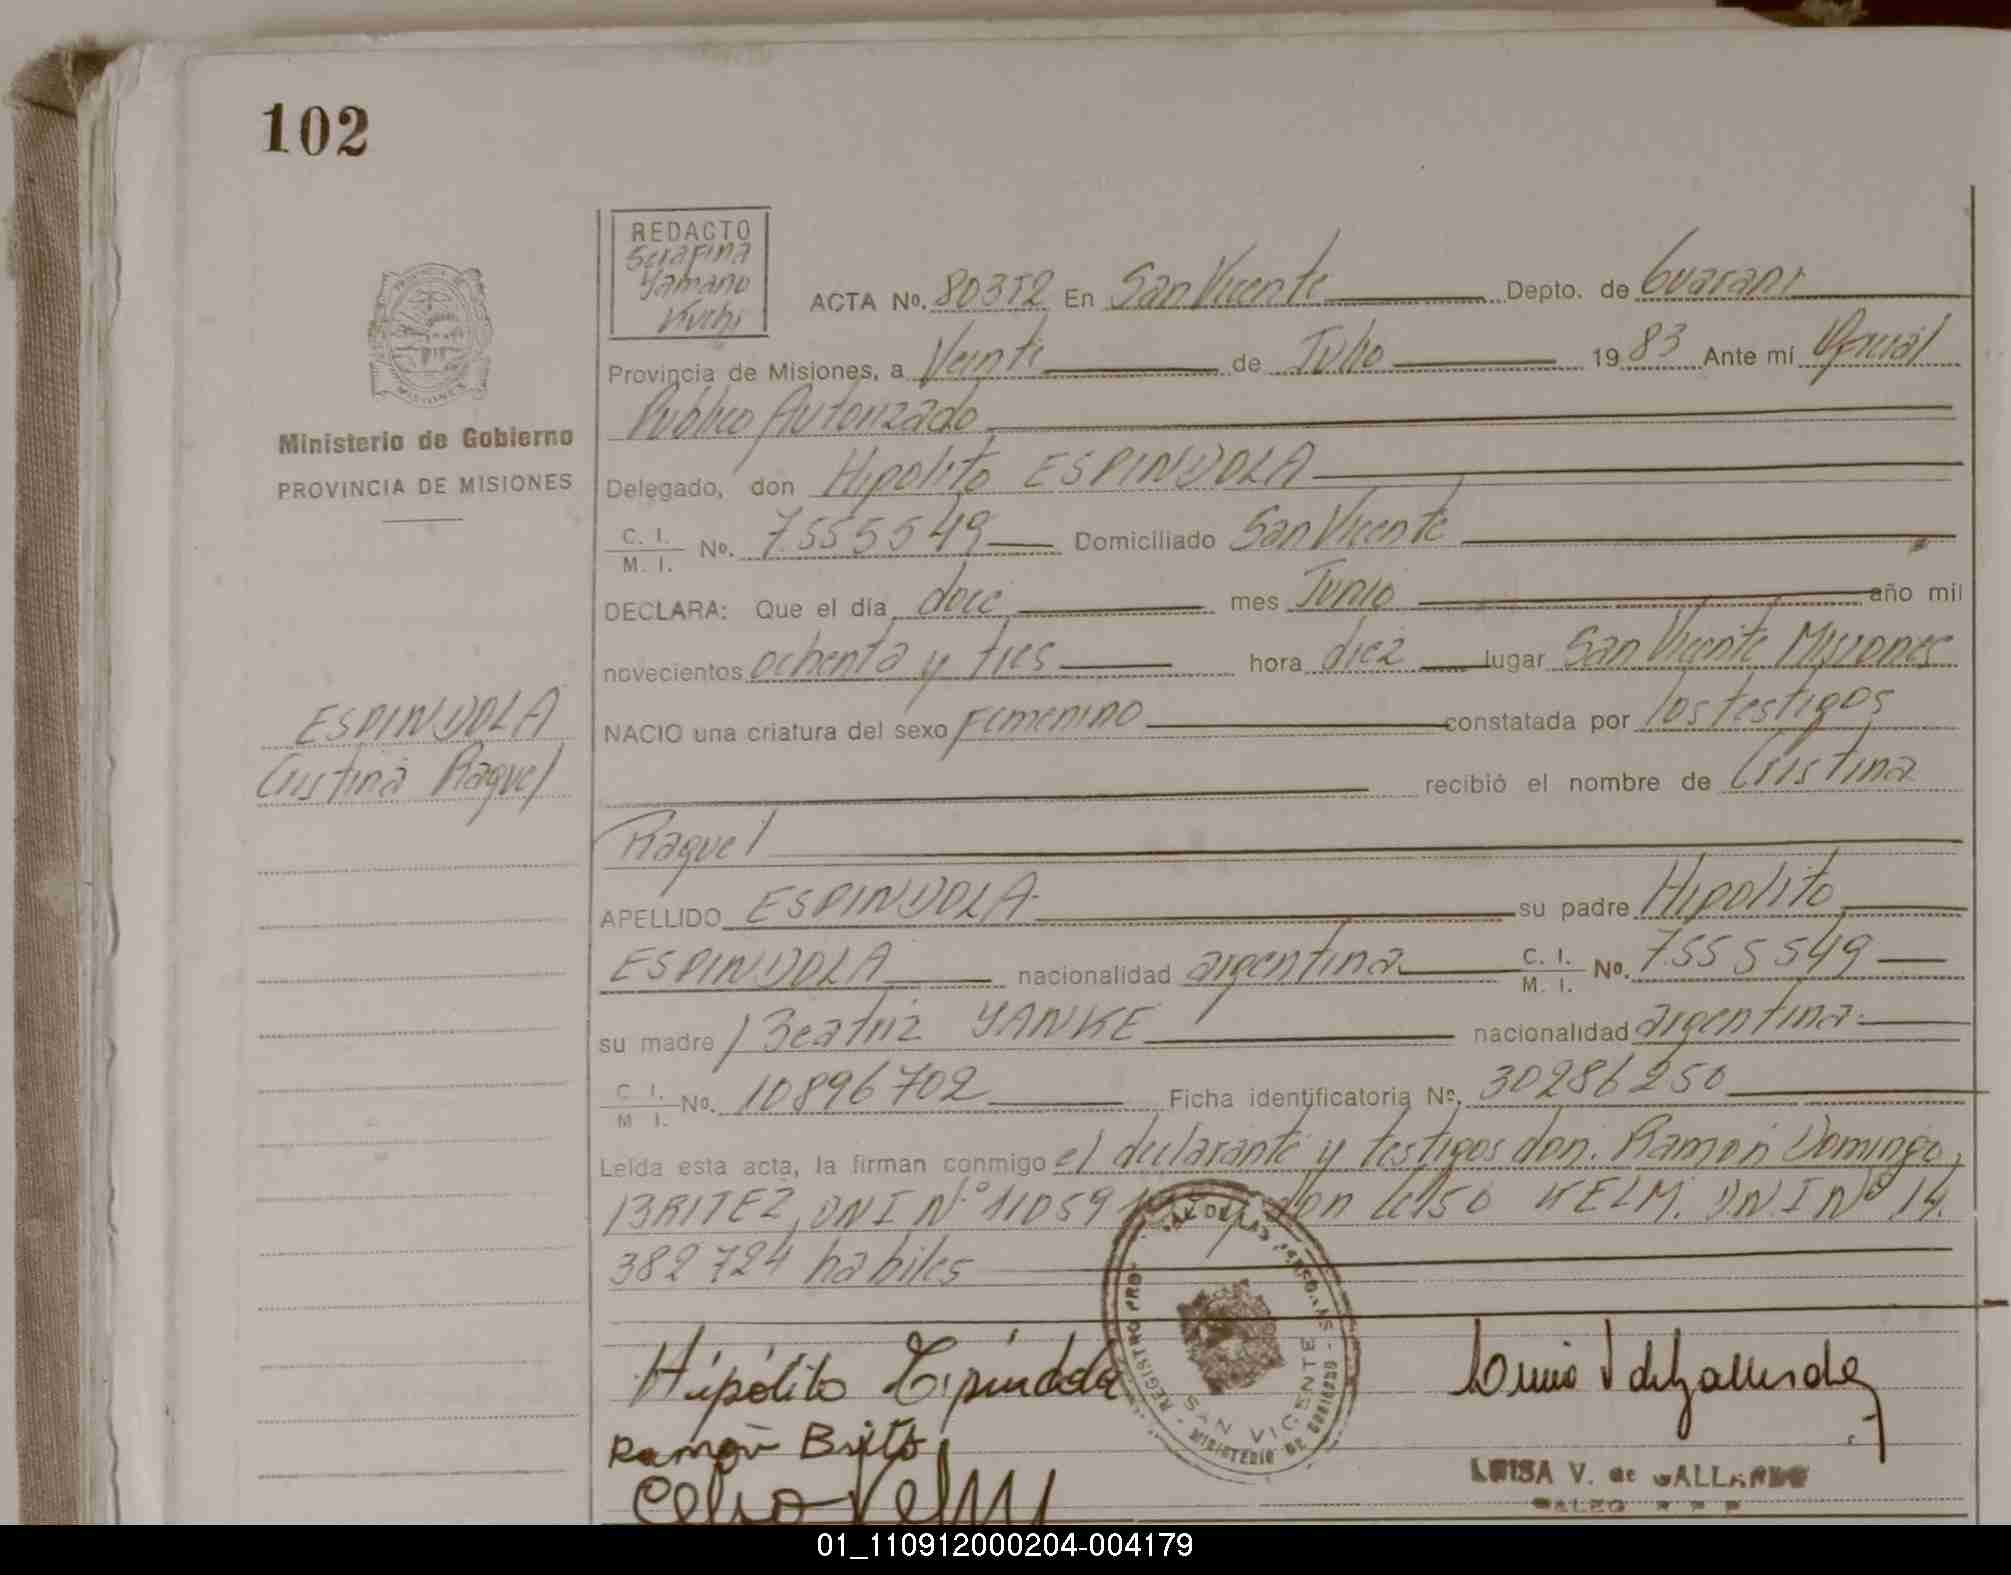 102
REDACTO
Serafina
Yamano
Kuchi
ACTA No. 80352 En San Vicente Depto. de Guarani
Provincia de Misiones, a Veinte de Julio 1983 Ante mí Oficial
Publico Autorizado
Ministerio de Gobierno
PROVINCIA DE MISIONES
MISIONES
Delegado, don Hipolito ESPINDOLA
C. I.
M. I. No. 7.555549 Domiciliado San Vicente
DECLARA: Que el día doce mes Junio año mil
novecientos ochenta y tres hora diez lugar San Vicente Misiones
NACIO una criatura del sexo Femenino constatada por los testigos
ESPINDOLA
Cristina Raquel
recibió el nombre de Cristina
Raquel
APELLIDO ESPINDOLA su padre Hipolito
ESPINDOLA nacionalidad argentina C. I. M. I. No. 7.555549
su madre Beatriz YANKE nacionalidad argentina
C. I. M. I. No. 10896702 Ficha identificatoria No. 30286250
Leída esta acta, la firman conmigo el declarante y testigos don. Ramon Domingo
BRITEZ, DNI N° y don Celso KELM. DNI N° 14.
382724 habiles
Hipólito Espíndola
Ramón
Celso Kelm
REGISTRO PRO
SAN VICENTE
MINISTERIO DE GOBIERNO
LUISA V. de GALLARDO
01_110912000204-004179